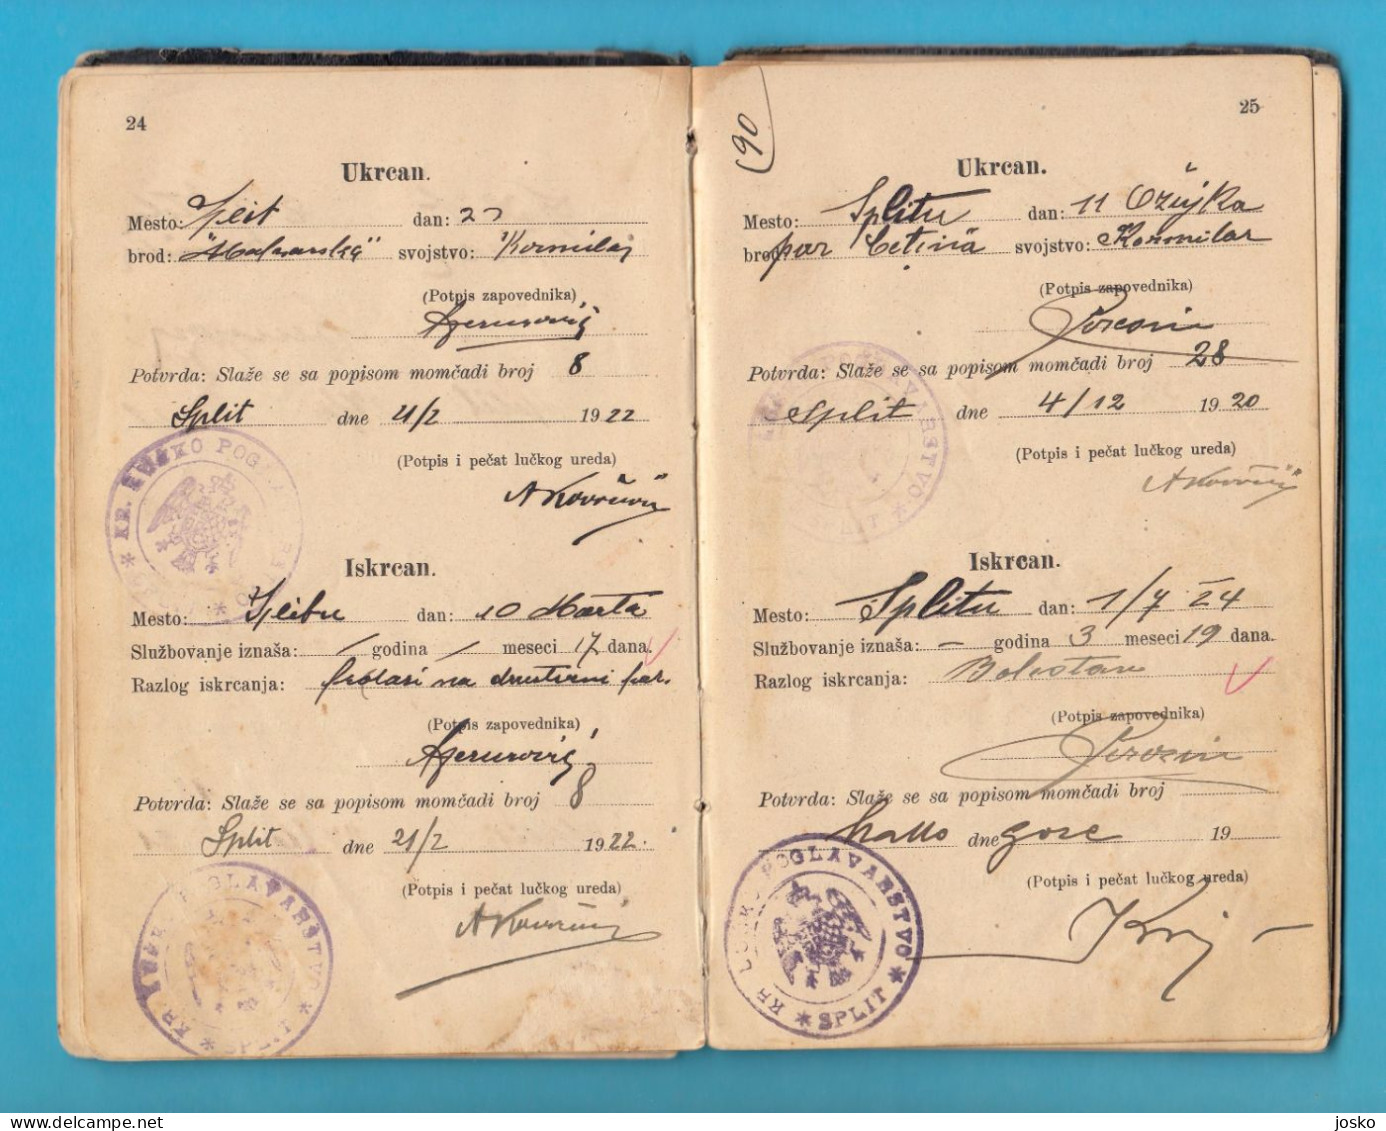 24
Ukrcan.
Mesto: Split dan: 23
brod: "Makarska" svojstvo: Kormilaj
(Potpis zapovednika)
Potvrda: Slaže se sa popisom momčadi broj 8
Split dne 21/2 1922
(Potpis i pečat lučkog ureda)
KR. LUČKO POGLAVARSTVO
Iskrcan.
Mesto: Splitu dan: 10 Marta
Službovanje iznaša: — godina — meseci 17 dana.
Razlog iskrcanja: na društveni par.
(Potpis zapovednika)
Potvrda: Slaže se sa popisom momčadi broj 8
Split dne 21/2 1922.
(Potpis i pečat lučkog ureda)
KR. LUČKO POGLAVARSTVO * SPLIT *
25
90
Ukrcan.
Mesto: Splitu dan: 11 Ožujka
brod: par Cetina svojstvo: Kormilar
(Potpis zapovednika)
Potvrda: Slaže se sa popisom momčadi broj 28
Split dne 4/12 1920
(Potpis i pečat lučkog ureda)
POGLAVARSTVO * SPLIT
Iskrcan.
Mesto: Splitu dan: 1/7 24
Službovanje iznaša: — godina 3 meseci 19 dana.
Razlog iskrcanja: Bolestan
(Potpis zapovednika)
Potvrda: Slaže se sa popisom momčadi broj
kako dne gore 19
(Potpis i pečat lučkog ureda)
KR. LUČKO POGLAVARSTVO * SPLIT *
josko